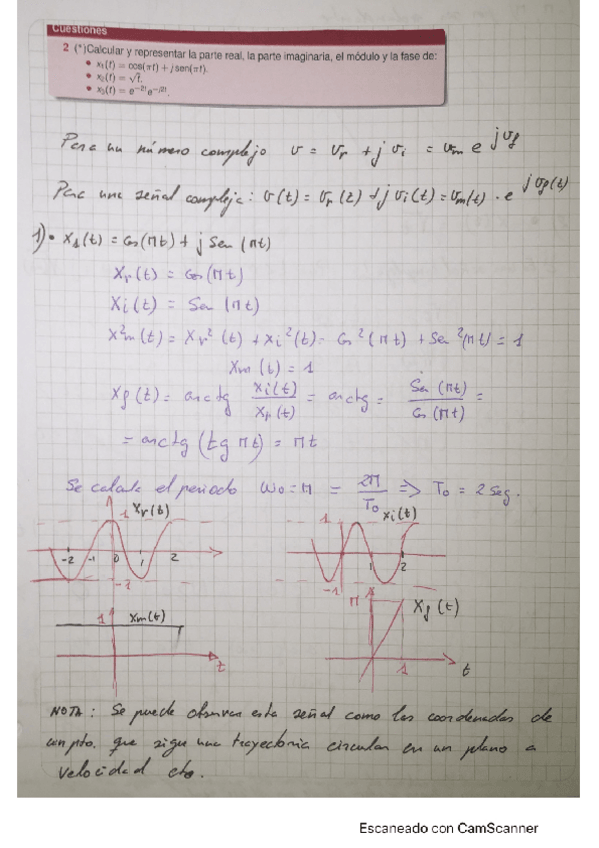 Cuestiones
2 (*)Calcular y representar la parte real, la parte imaginaria, el módulo y la fase de:
• x₁(t) = cos(πt) + jsen(πt).
• x₂(t) = √t.
• x₃(t) = e^{-2t}e^{-j2t}.
Para un número complejo v = vr + j vi = vm e^{jvf}
Para una señal compleja: v(t) = vr(t) + j vi(t) = vm(t) · e^{jvf(t)}
1) • x₁(t) = Cos(πt) + j Sen(πt)
Xr(t) = Cos(πt)
Xi(t) = Sen(πt)
X²m(t) = Xr²(t) + Xi²(t) = Cos²(πt) + Sen²(πt) = 1
Xm(t) = 1
Xf(t) = arctg Xi(t)/Xr(t) = arctg = Sen(πt)/Cos(πt) =
= arctg(tg πt) = πt
Se calcula el periodo ω₀ = π = 2π/T₀ => T₀ = 2 seg.
1 Xr(t)
-2 -1 0 1 2
-1
1 Xi(t)
1 2
-1
1 Xm(t)
t
π Xf(t)
1 t
NOTA: Se puede observar esta señal como las coordenadas de
un pto. que sigue una trayectoria circular en un plano a
velocidad cte.
Escaneado con CamScanner